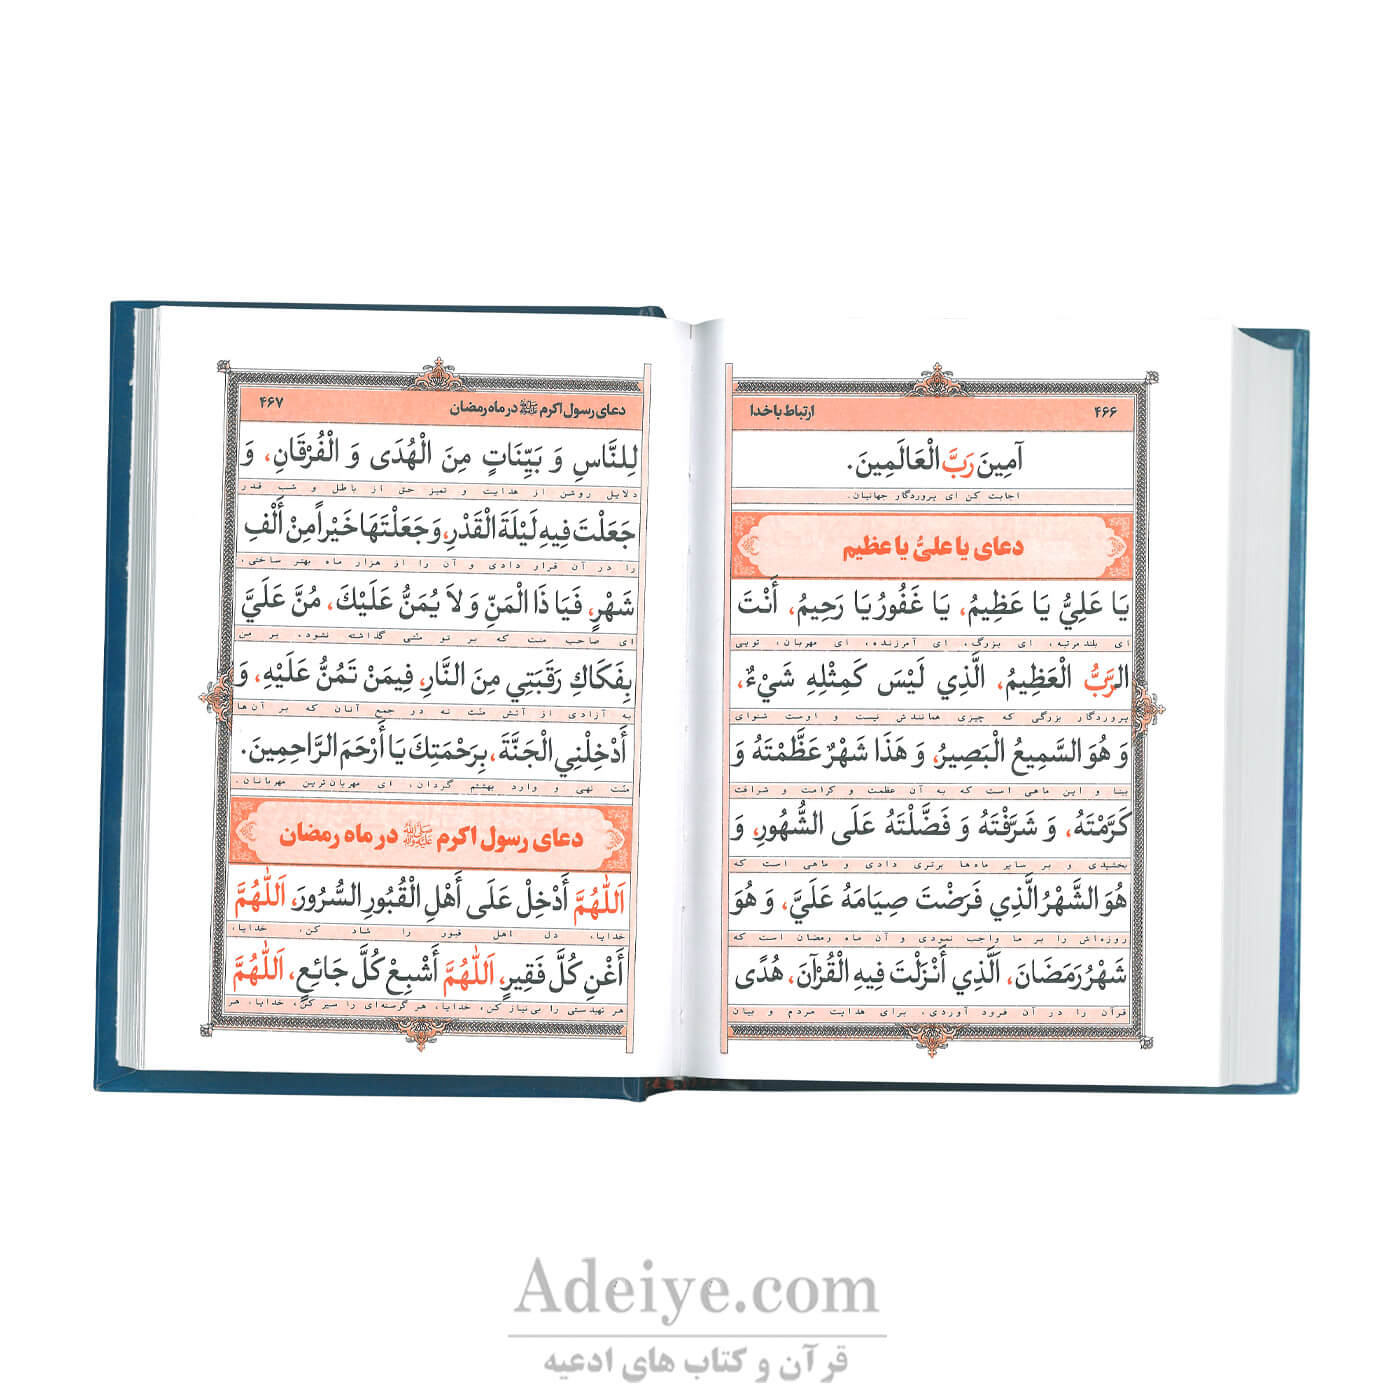 ۴۶۶ ارتباط با خدا
آمِينَ رَبَّ الْعَالَمِينَ.
اجابت کن ای پروردگار جهانیان.
دعای یا علیُّ یا عظیم
يَا عَلِيُّ يَا عَظِيمُ، يَا غَفُورُ يَا رَحِيمُ، أَنْتَ
ای بلندمرتبه، ای بزرگ، ای آمرزنده، ای مهربان، تویی
الرَّبُّ الْعَظِيمُ، الَّذِي لَيْسَ كَمِثْلِهِ شَيْءٌ،
پروردگار بزرگی که چیزی همانندش نیست و اوست شنوای
وَ هُوَ السَّمِيعُ الْبَصِيرُ، وَ هَذَا شَهْرٌ عَظَّمْتَهُ وَ
بینا و این ماهی است که به آن عظمت و کرامت و شرافت
كَرَّمْتَهُ، وَ شَرَّفْتَهُ وَ فَضَّلْتَهُ عَلَى الشُّهُورِ، وَ
بخشیدی و بر سایر ماه‌ها برتری دادی و ماهی است که
هُوَ الشَّهْرُ الَّذِي فَرَضْتَ صِيَامَهُ عَلَيَّ، وَ هُوَ
روزه‌اش را بر ما واجب نمودی و آن ماه رمضان است که
شَهْرُ رَمَضَانَ، اَلَّذِي أَنْزَلْتَ فِيهِ الْقُرْآنَ، هُدًى
قرآن را در آن فرود آوردی، برای هدایت مردم و بیان
دعای رسول اکرم ﷺ در ماه رمضان ۴۶۷
لِلنَّاسِ وَ بَيِّنَاتٍ مِنَ الْهُدَى وَ الْفُرْقَانِ، وَ
دلایل روشن از هدایت و تمیز حق از باطل و شب قدر
جَعَلْتَ فِيهِ لَيْلَةَ الْقَدْرِ، وَ جَعَلْتَهَا خَيْراً مِنْ أَلْفِ
را در آن قرار دادی و آن را از هزار ماه بهتر ساختی،
شَهْرٍ، فَيَا ذَا الْمَنِّ وَ لاَ يُمَنُّ عَلَيْكَ، مُنَّ عَلَيَّ
ای صاحب منت که بر تو منّتی گذاشته نشود، بر من
بِفَكَاكِ رَقَبَتِي مِنَ النَّارِ، فِيمَنْ تَمُنُّ عَلَيْهِ، وَ
به آزادی از آتش منّت نه در جمع آنان که بر آن‌ها
أَدْخِلْنِي الْجَنَّةَ، بِرَحْمَتِكَ يَا أَرْحَمَ الرَّاحِمِينَ.
منّت نهی و وارد بهشتم گردان، ای مهربان‌ترین مهربانان.
دعای رسول اکرم ﷺ در ماه رمضان
اَللّٰهُمَّ أَدْخِلْ عَلَى أَهْلِ الْقُبُورِ السُّرُورَ، اَللّٰهُمَّ
خدایا، دل اهل قبور را شاد کن، خدایا،
أَغْنِ كُلَّ فَقِيرٍ، اَللّٰهُمَّ أَشْبِعْ كُلَّ جَائِعٍ، اَللّٰهُمَّ
هر تهیدستی را بی‌نیاز کن، خدایا، هر گرسنه‌ای را سیر کن، خدایا، هر
Adeiye.com
قرآن و کتاب های ادعیه